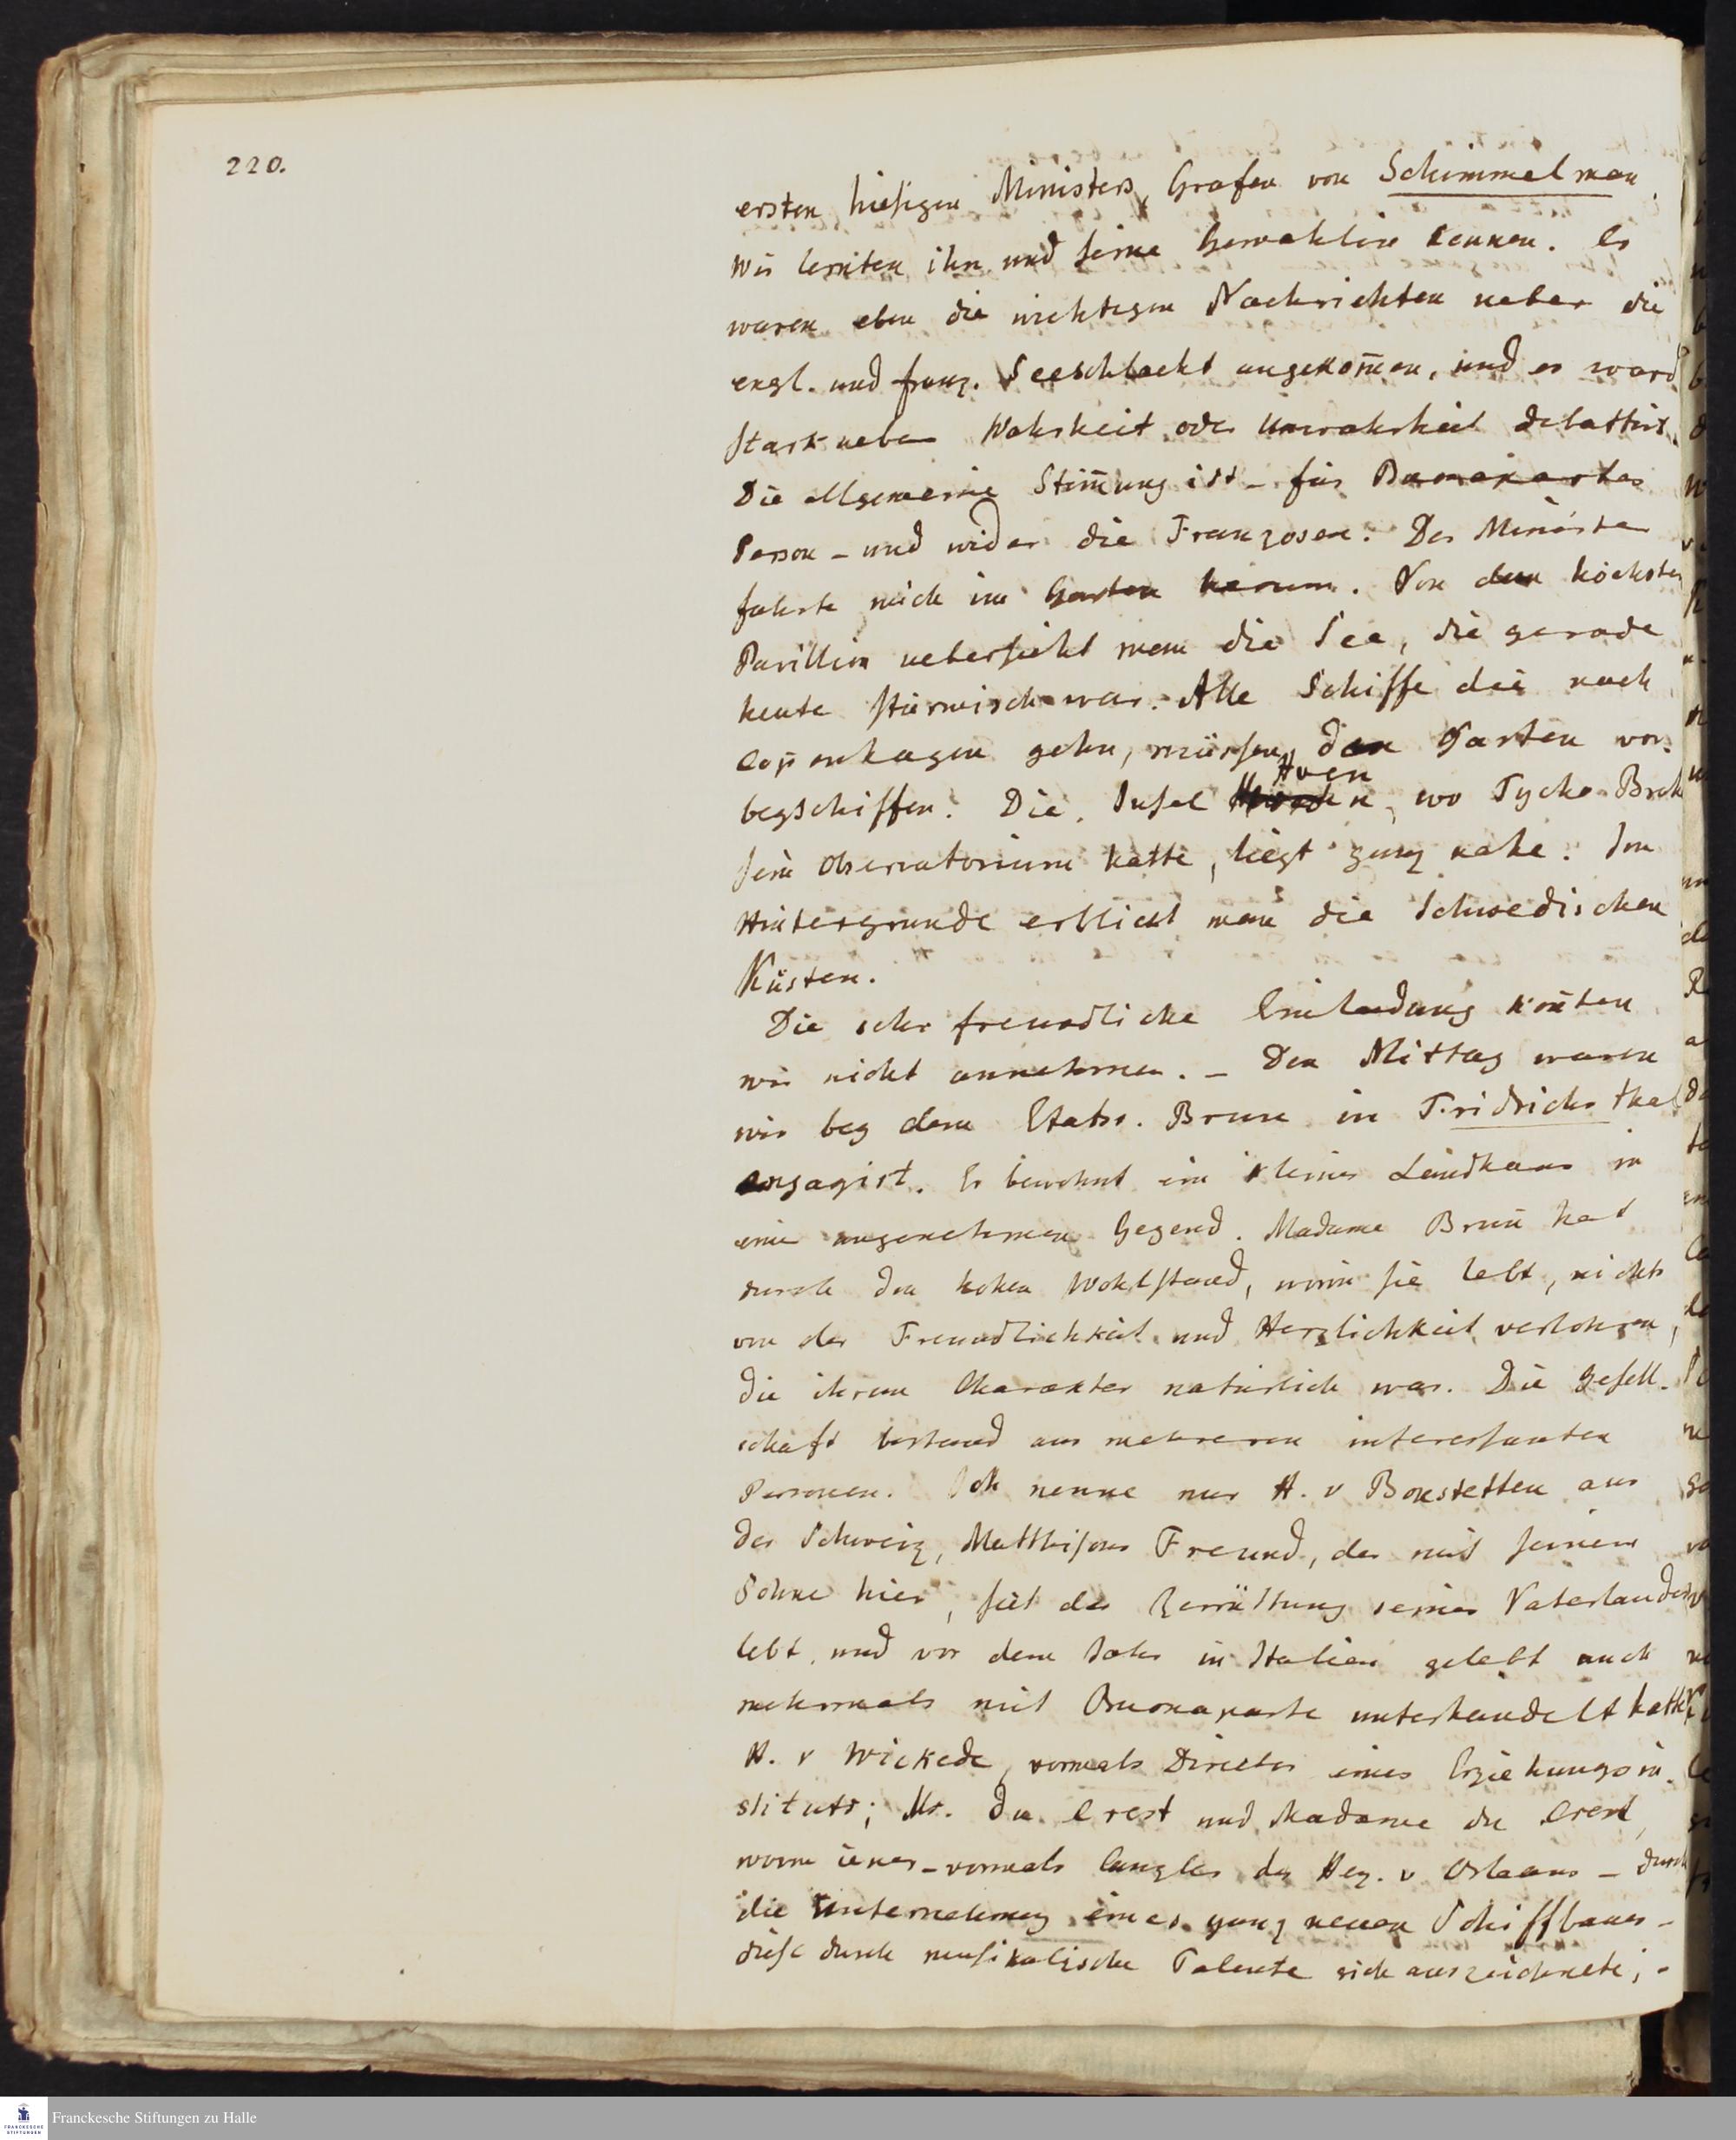 220.
ersten hiesigen Ministers, Grafen von Schimmelman.
Wir lernten ihn und seine Gemahlin kennen. Es
waren eben die wichtigen Nachrichten ueber die
engl. und franz. Seeschlacht angekom̄en, und es ward
stark ueber Wahrheit oder Unwahrheit debattirt.
Die allgemeine Stim̄ung ist – für Buonapartes
Person – und wider die Franzosen. Der Minister
fuhrte mich im Garten herum. Von dem höchsten
Pavillion uebersieht man die See, die gerade
heute stürmisch war. Alle Schiffe die nach
Copenhagen gehn, müssen den Garten vor-
beyschiffen. Die Insel Hven, wo Tycho Brah
sein Observatorium hatte, liegt ganz nahe. Im
Hintergrunde erblickt man die Schwedischen
Küsten.
Die sehr freundliche Einladung kon̄ten
wir nicht annehmen. – Den Mittag waren
wir bey dem Etatsr. Brun in Fridrichsthal
engagirt. Er bewohnt ein kleines Landhaus in
einer angenehmen Gegend. Madame Brun̄ hat
durch den hohen Wohlstand, worin sie lebt, nichts
von der Freundlichkeit und Herzlichkeit verlohren,
die ihrem Charakter natürlich war. Die Gesell-
schaft bestand aus mehreren interessanten
Personen. Ich nenne nur H. v Bonstetten aus
der Schweiz, Matthisons Freund, der mit seinem
Sohne hier, seit der Zerrüttung seines Vaterlandes
lebt, und vor dem Jahr in Italien gelebt auch
mehrmals mit Buonaparte unterhandelt hatte,
H. v Wickede, vormals Director eines Erziehungsin-
stituts; Mr. du Crest und Madame du Crest,
wovon jener – vormals Canzler des Herz. v Orleans – durch
die Unternehmung eines ganz neuen Schiffbaues –
diese durch musikalische Talente sich auszeichnete; –
Franckesche Stiftungen zu Halle
FRANCKESCHE
STIFTUNGEN